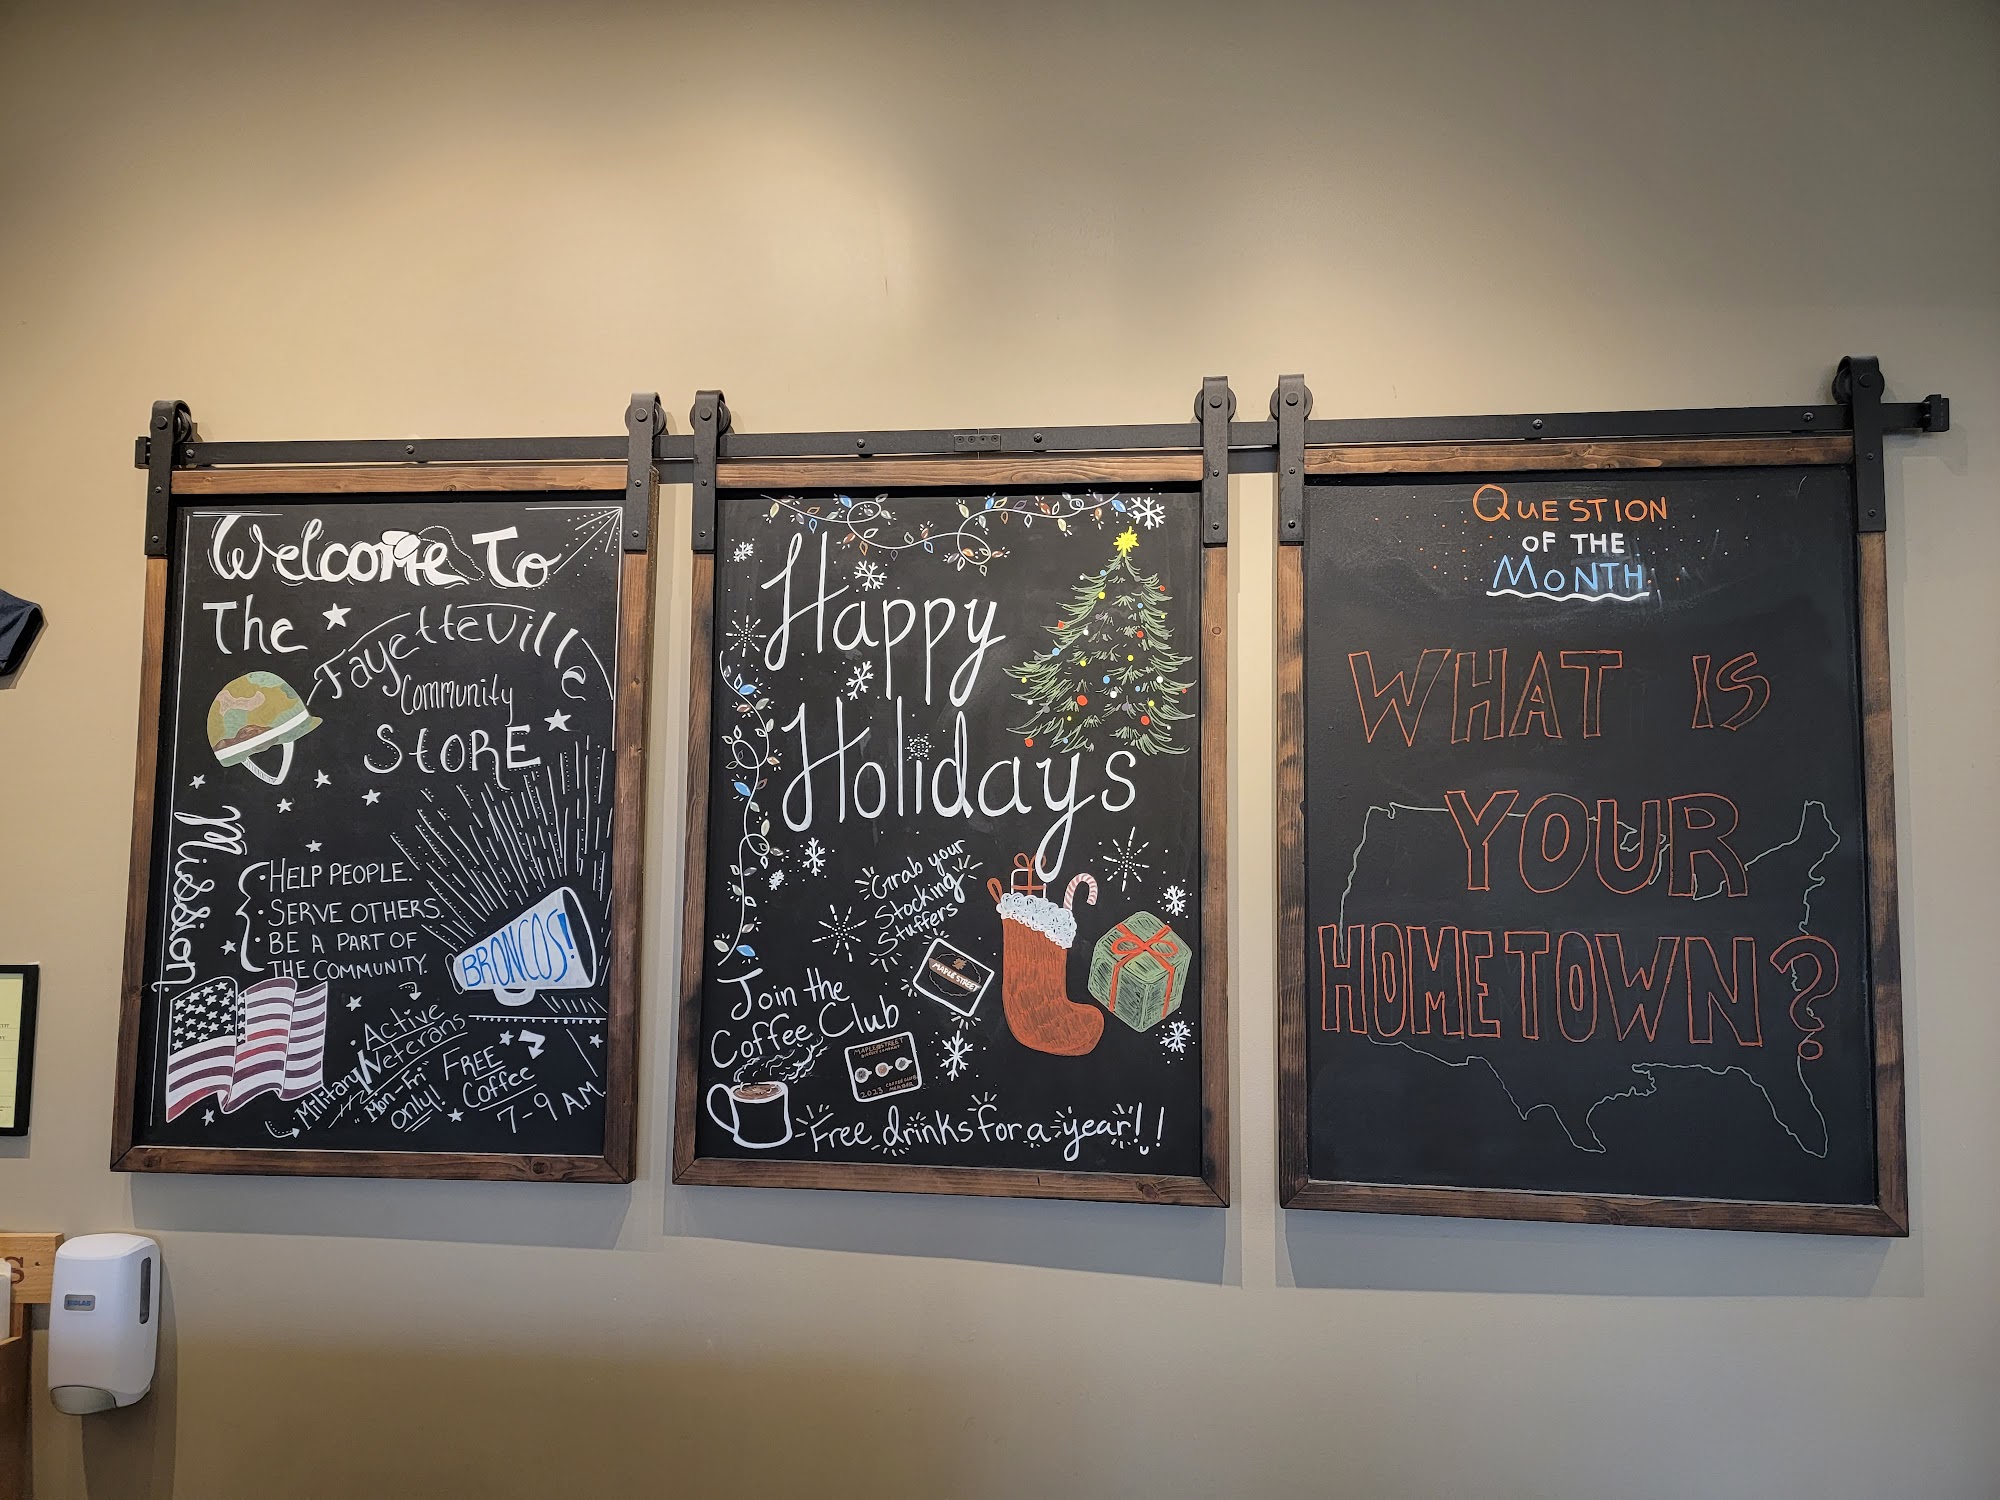 Welcome To
The
Fayetteville
Community
STORE
Mission:
· HELP PEOPLE.
· SERVE OTHERS.
· BE A PART OF
THE COMMUNITY.
BRONCOS!
Active
Military/Veterans
Mon-Fri
only!
FREE
Coffee
7-9 A.M.
Happy
Holidays
Grab your
Stocking
Stuffers
MAPLE STREET
Join the
Coffee Club
MAPLE STREET
BISCUIT COMPANY
2023
COFFEE CLUB
MEMBER
Free drinks for a year!!
QUESTION
OF THE
MONTH
WHAT IS
YOUR
HOMETOWN?
S
ECOLAB